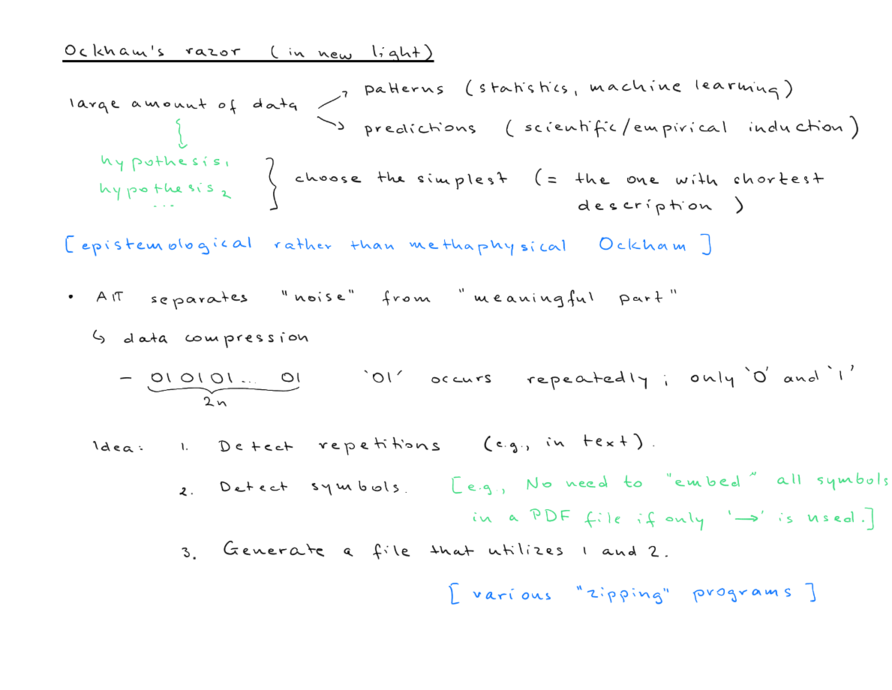 Ockham's razor (in new light)
large amount of data
patterns (statistics, machine learning)
predictions (scientific/empirical induction)
hypothesis1
hypothesis2
...
choose the simplest (= the one with shortest
description )
[epistemological rather than methaphysical Ockham]
• AIT separates "noise" from "meaningful part"
↳ data compression
- 010101... 01 '01' occurs repeatedly; only '0' and '1'
2n
Idea: 1. Detect repetitions (e.g., in text).
2. Detect symbols. [e.g, No need to "embed" all symbols
in a PDF file if only '→' is used.]
3. Generate a file that utilizes 1 and 2.
[various "zipping" programs]